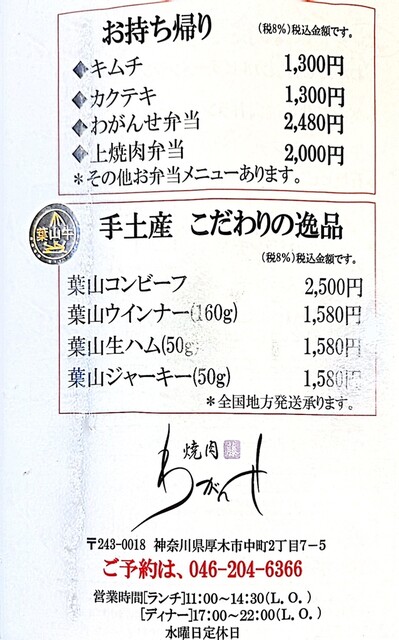 お持ち帰り (税8%)税込金額です。
◆キムチ 1,300円
◆カクテキ 1,300円
◆わがんせ弁当 2,480円
◆上焼肉弁当 2,000円
*その他お弁当メニューあります。
葉山牛
手土産 こだわりの逸品
(税8%)税込金額です。
葉山コンビーフ 2,500円
葉山ウインナー(160g) 1,580円
葉山生ハム(50g) 1,580円
葉山ジャーキー(50g) 1,580円
*全国地方発送承ります。
焼肉
わがんせ
〒243-0018 神奈川県厚木市中町2丁目7-5
ご予約は、046-204-6366
営業時間[ランチ]11:00~14:30(L.O.)
[ディナー]17:00~22:00(L.O.)
水曜日定休日